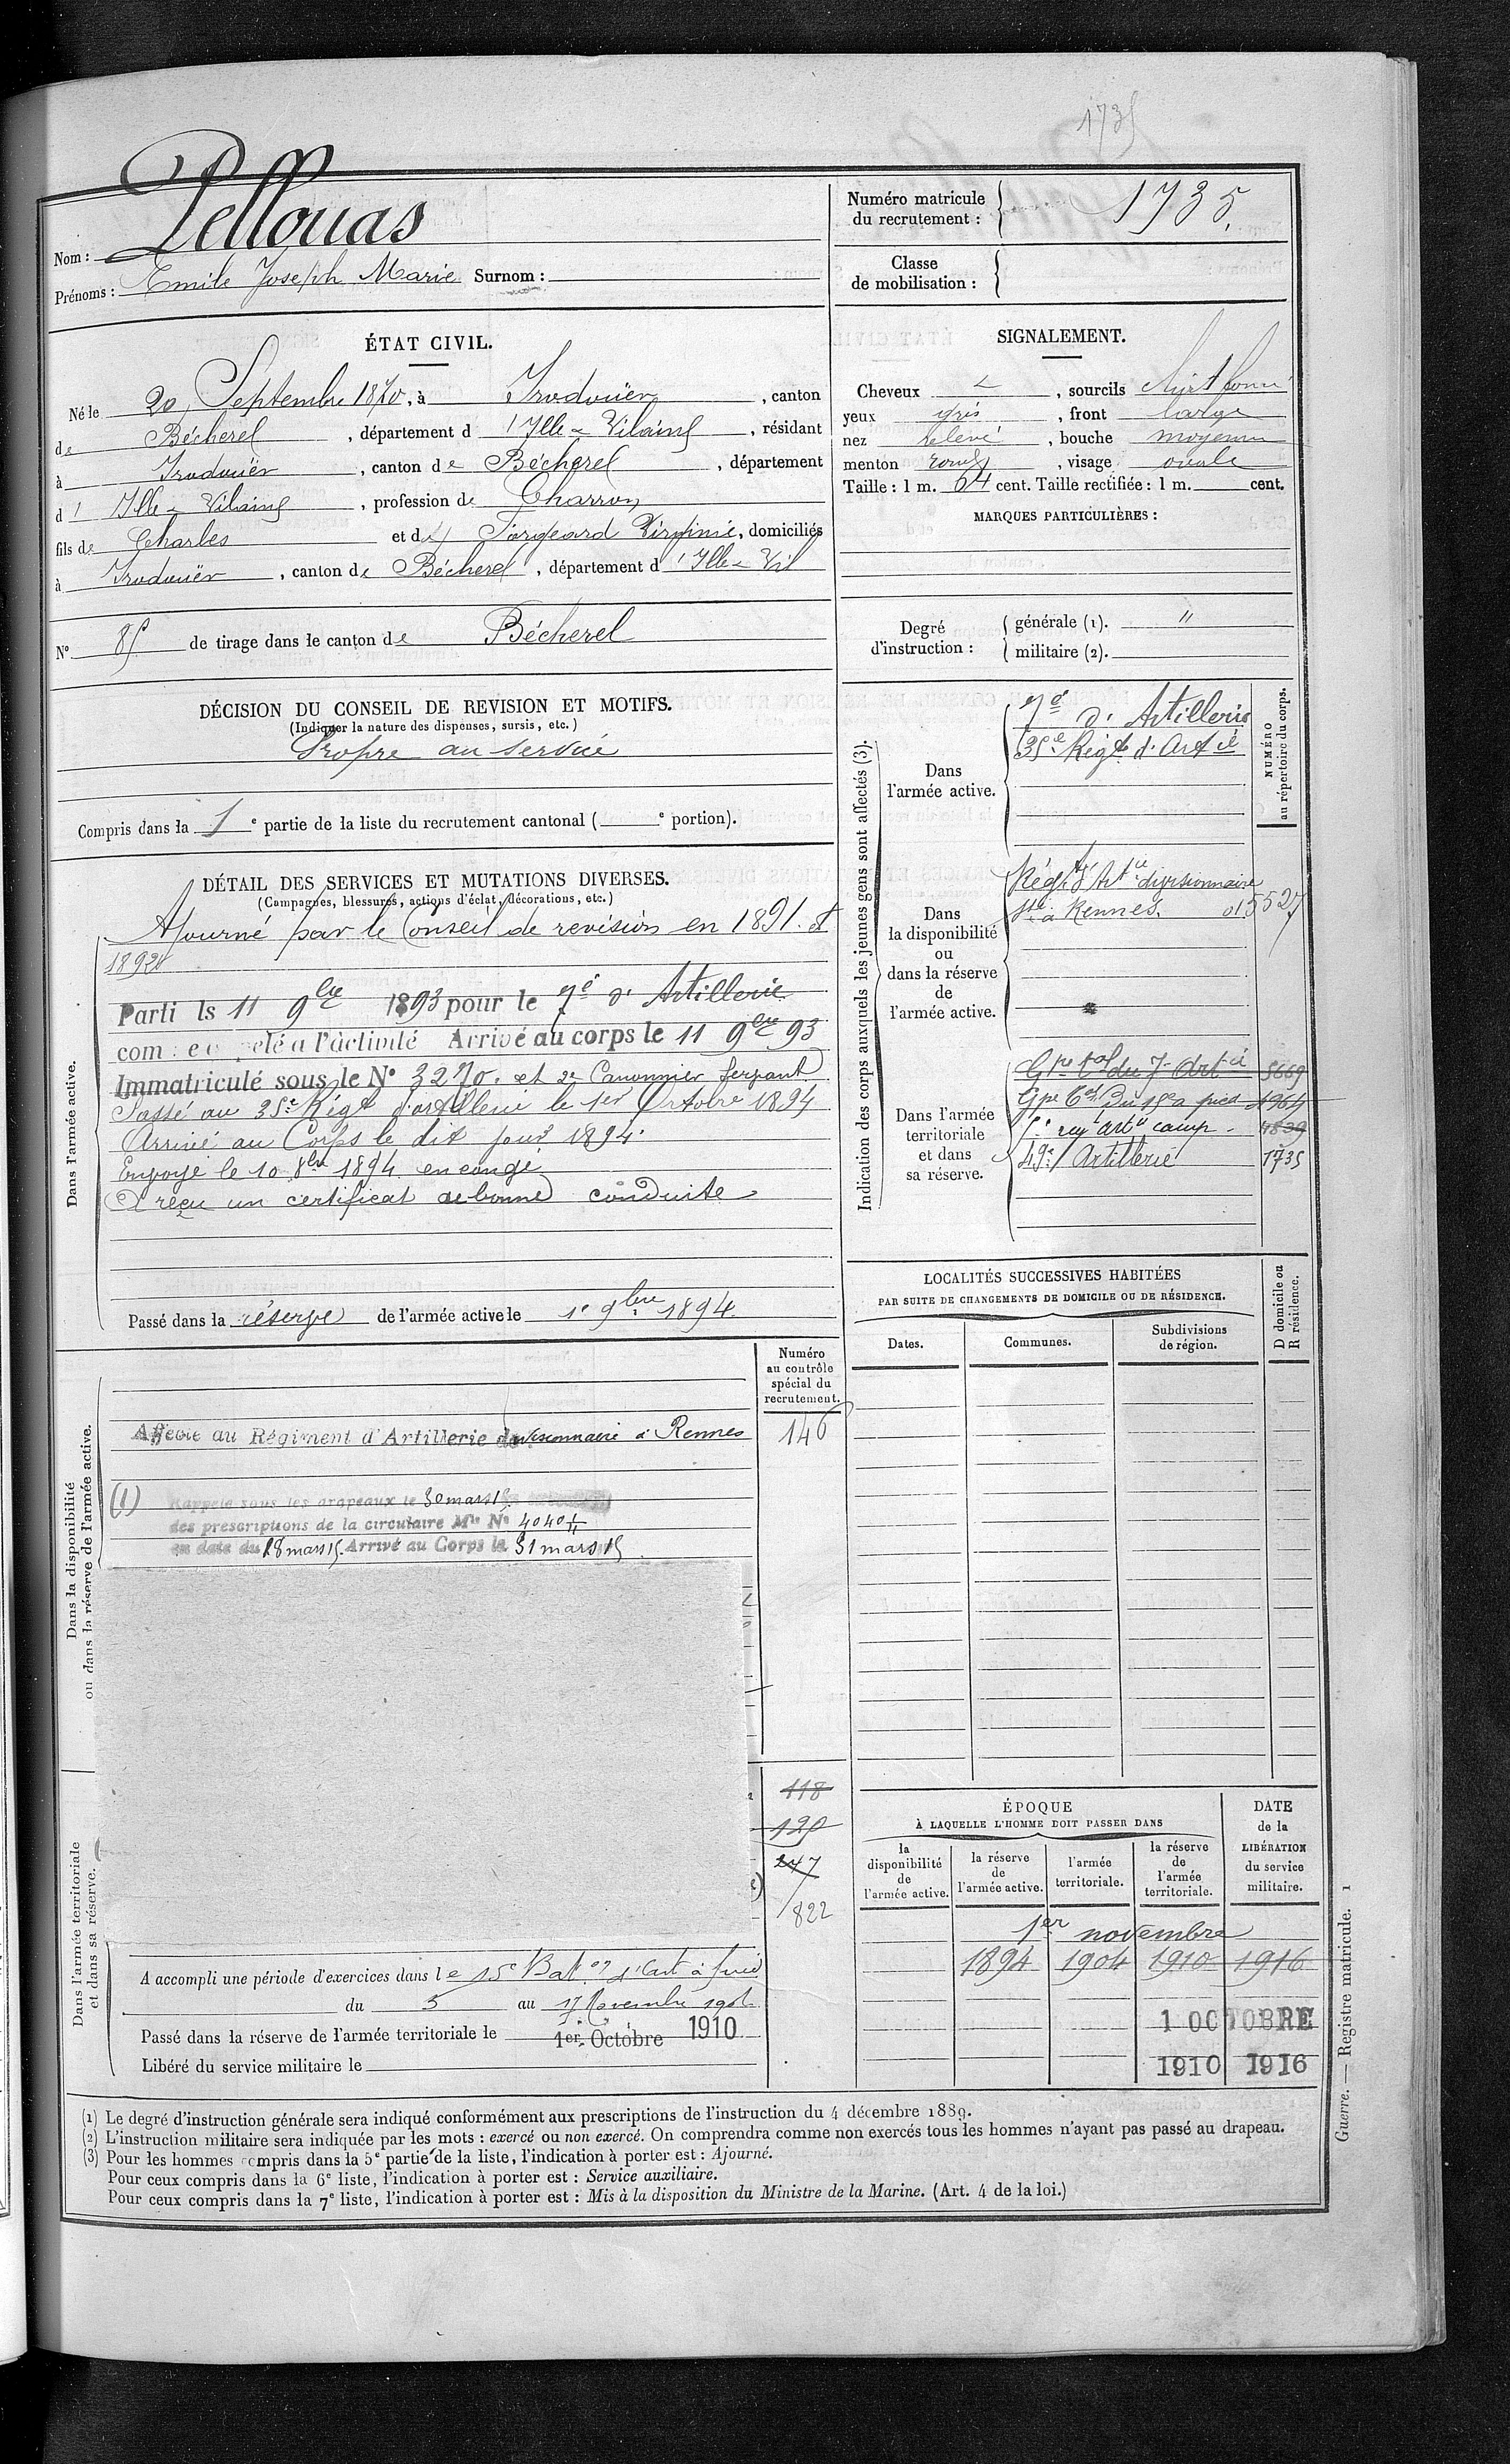 1735
Nom : Pellouas
Prénoms : Emile Joseph Marie Surnom :
Numéro matricule
du recrutement : 1735.
Classe
de mobilisation :
ÉTAT CIVIL.
Né le 20 Septembre 1870, à Irodouër, canton
de Bécherel, département d'Ille-&-Vilaine, résidant
à Irodouër, canton de Bécherel, département
d'Ille-&-Vilaine, profession de Charron
fils de Charles et de Virginie, domiciliés
à Irodouër, canton de Bécherel, département d'Ille-&-Vil
N° 85 de tirage dans le canton de Bécherel
SIGNALEMENT.
Cheveux, sourcils chât foncé
yeux gris, front large
nez relevé, bouche moyenne
menton rond, visage ovale
Taille : 1 m. 64 cent. Taille rectifiée : 1 m. cent.
MARQUES PARTICULIÈRES :
Degré
d'instruction :
générale (1). "
militaire (2).
DÉCISION DU CONSEIL DE REVISION ET MOTIFS.
(Indiquer la nature des dispenses, sursis, etc.)
Propre au service
Compris dans la 1e partie de la liste du recrutement cantonal ( e portion).
DÉTAIL DES SERVICES ET MUTATIONS DIVERSES.
(Campagnes, blessures, actions d'éclat, décorations, etc.)
Dans l'armée active.
Ajourné par le Conseil de revision en 1891. et
1892
Parti le 11 9bre 1893 pour le 7e d'Artillerie
comme appelé à l'activité Arrivé au corps le 11 9bre 93
Immatriculé sous le N° 3270. et 2e Canonnier servant
Passé au 35e Régt d'artillerie le 1er Octobre 1894
Arrivé au Corps le dit jour 1894.
Envoyé le 10 8bre 1894 en congé
A reçu un certificat de bonne conduite
Passé dans la réserve de l'armée active le 1er 9bre 1894.
Indication des corps auxquels les jeunes gens sont affectés (3).
NUMÉRO
au répertoire du corps.
Dans
l'armée active.
7e d'Artillerie
35e Régt d'Art ie
Dans
la disponibilité
ou
dans la réserve
de
l'armée active.
Régt d'Art ie divisionnaire
à Rennes. 015527
Dans l'armée
territoriale
et dans
sa réserve.
Gpe tal du 7e Art ie 5669
Gpe tal du 15e à pied 4964
rey art ie camp. 4839
49e Artillerie 1735
LOCALITÉS SUCCESSIVES HABITÉES
PAR SUITE DE CHANGEMENTS DE DOMICILE OU DE RÉSIDENCE.
Dates.
Communes.
Subdivisions
de région.
D domicile ou
R résidence.
Numéro
au contrôle
spécial du
recrutement.
Dans la disponibilité
ou dans la réserve de l'armée active.
Affecté au Régiment d'Artillerie divisionnaire à Rennes 146
(1) Rappelé sous les drapeaux le 30 mars 15
des prescriptions de la circulaire Mlle N° 4040
en date du 18 mars 15. Arrivé au Corps le 31 mars 15
Dans l'armée territoriale
et dans sa réserve.
118
120
247
822
A accompli une période d'exercices dans le 15e Baton d'art à pied
du 5 au 17 Novembre
Passé dans la réserve de l'armée territoriale le 1er Octobre 1910
Libéré du service militaire le
ÉPOQUE
À LAQUELLE L'HOMME DOIT PASSER DANS
la
disponibilité
de
l'armée active.
la réserve
de
l'armée active.
l'armée
territoriale.
la réserve
de
l'armée
territoriale.
DATE
de la
LIBÉRATION
du service
militaire.
1er novembre
1894 1904 1910 1916
1 OCTOBRE
1910 1916
Guerre. — Registre matricule. 1
(1) Le degré d'instruction générale sera indiqué conformément aux prescriptions de l'instruction du 4 décembre 1889.
(2) L'instruction militaire sera indiquée par les mots : exercé ou non exercé. On comprendra comme non exercés tous les hommes n'ayant pas passé au drapeau.
(3) Pour les hommes compris dans la 5e partie de la liste, l'indication à porter est : Ajourné.
Pour ceux compris dans la 6e liste, l'indication à porter est : Service auxiliaire.
Pour ceux compris dans la 7e liste, l'indication à porter est : Mis à la disposition du Ministre de la Marine. (Art. 4 de la loi.)